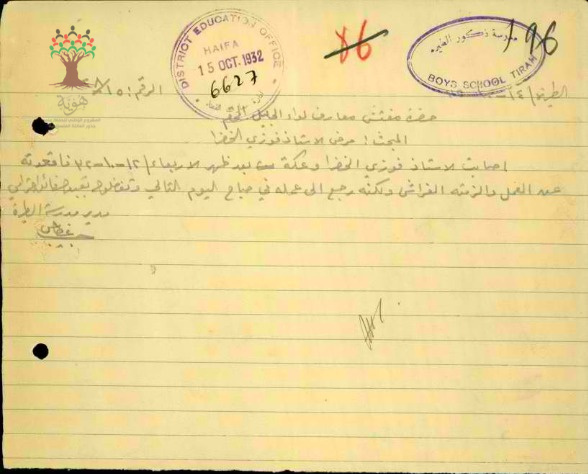 DISTRICT EDUCATION OFFICE
HAIFA
15 OCT. 1932
6627
86
196
مدرسة ذكور الطيره
BOYS SCHOOL TIRAH
هوية
الرقم: ٥
حضرة مفتش معارف لواء الجليل
المبحث: مرض الاستاذ فوزي الخضرا
اصابت الاستاذ فوزي الخضرا وعكة بعد ظهر الاربعاء فاقعدته
عن العمل والزمته الفراش ولكنه رجع الى عمله في صباح اليوم التالي وتفضلوا بقبول فائق احترامي
مدير مدرسة الطيرة